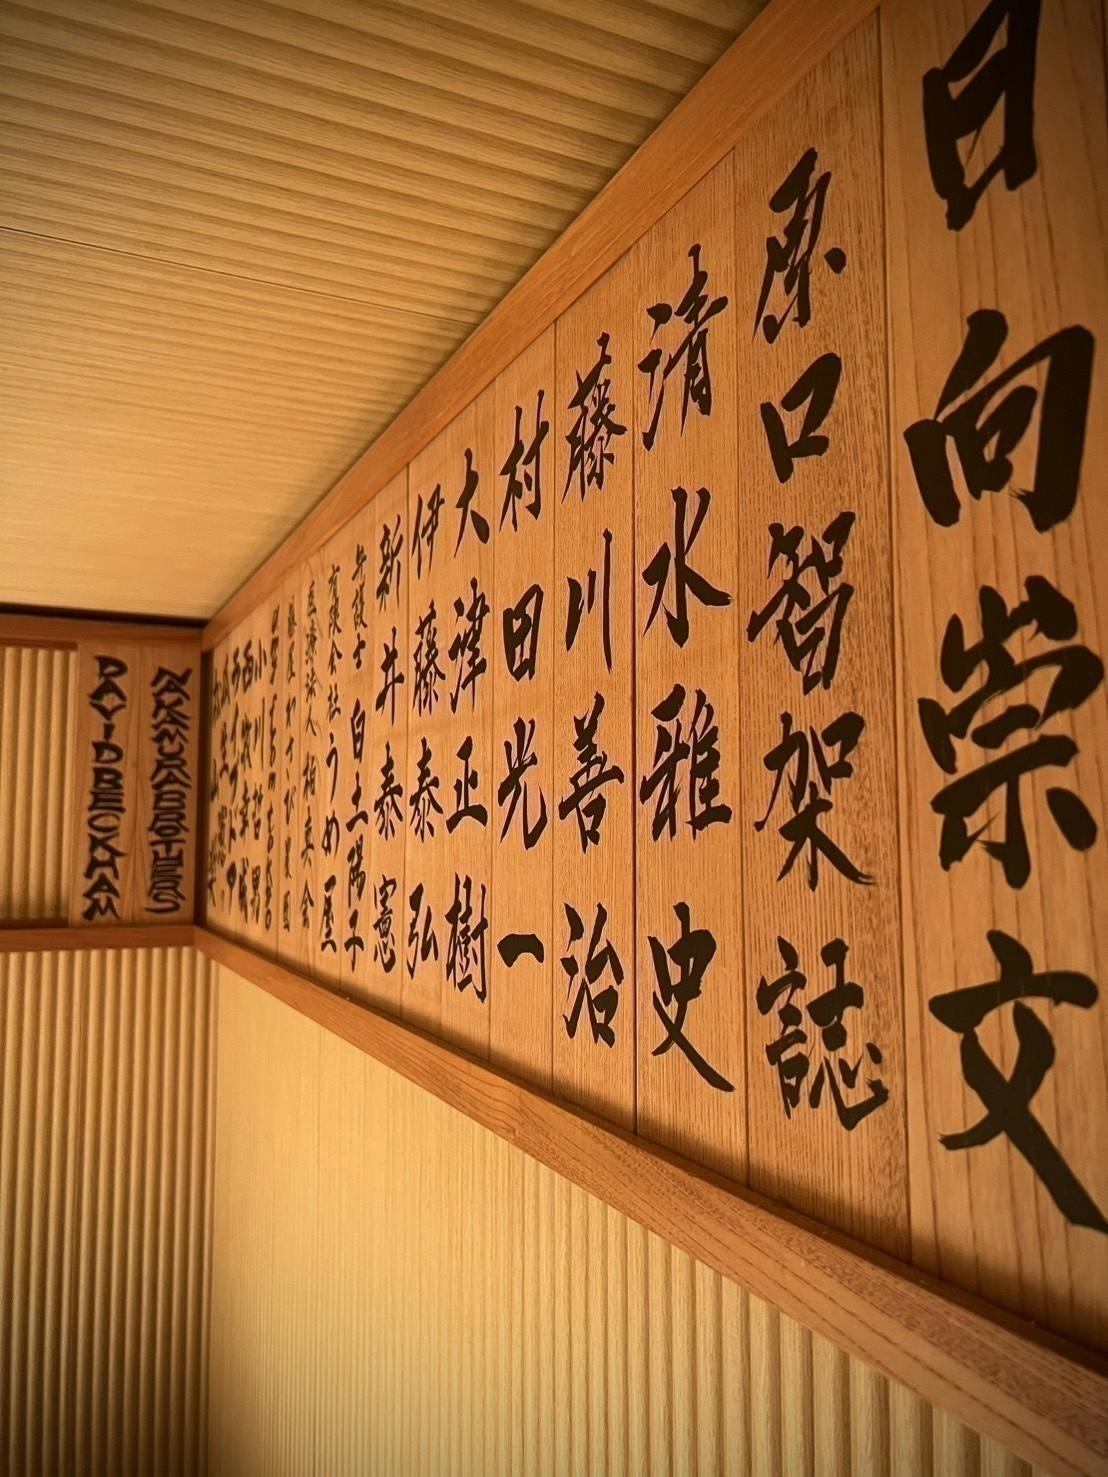 日向崇文
原口智架誌
清水雅史
藤川善治
村田光一
大津正樹
伊藤泰弘
新井泰憲
弁護士 白土陽子
有限会社うめ屋
医療法人 栴真会
小川哲男
NAKAMURA BROTHERS
DAVID BECKHAM